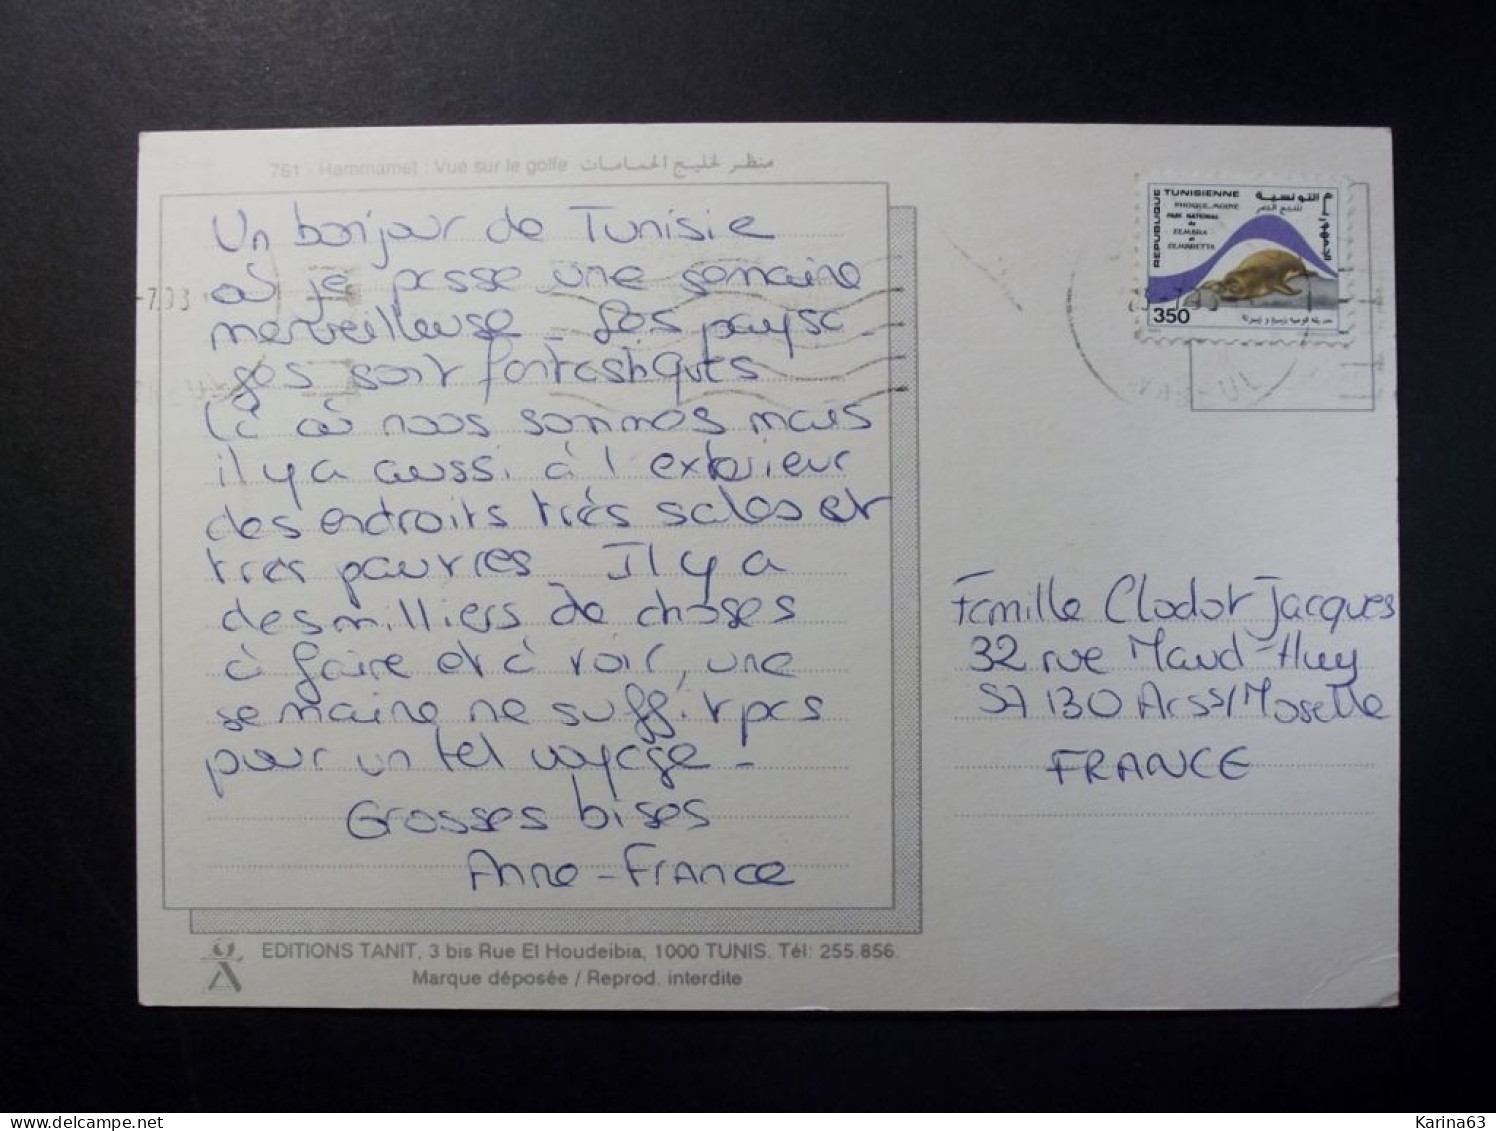 761 - Hammamet : Vue sur le golfe منظر لخليج الحمامات
Un bonjour de Tunisie
où je passe une semaine
merveilleuse. Les paysa
ges sont fantastiques
là où nous sommes mais
il y a aussi à l'exterieur
des endroits très sales et
très pauvres. Il y a
des milliers de choses
à faire et à voir, une
semaine ne suffit pas
pour un tel voyage -
Grosses bises
Anne-France
EDITIONS TANIT, 3 bis Rue El Houdeibia, 1000 TUNIS. Tél: 255.856.
Marque déposée / Reprod. interdite
REPUBLIQUE TUNISIENNE
التونسية
PHOQUE-MOINE
PARC NATIONAL
de
ZEMBRA
et
ZEMBRETTA
350
Famille Clodot Jacques
32 rue Maud-Huy
57130 Ars s/Moselle
FRANCE
Karina63